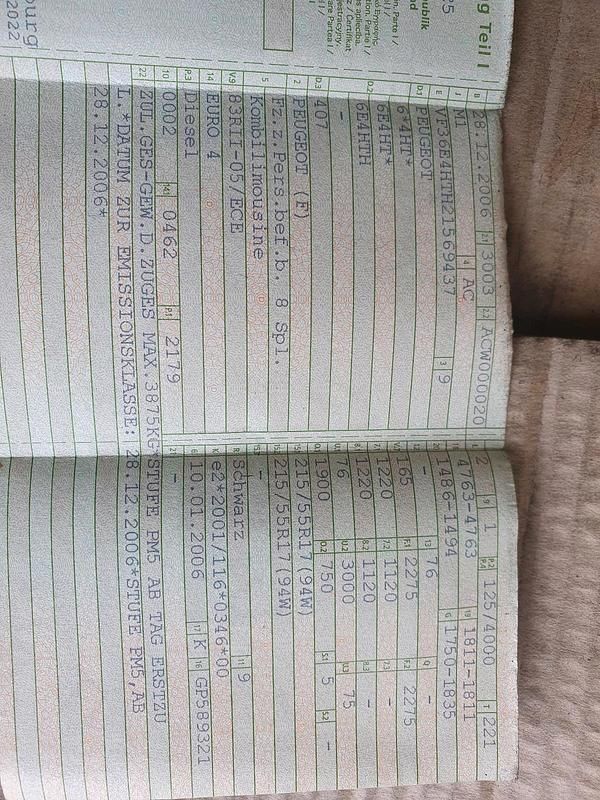 g Teil I
B 28.12.2006 2.1 3003 2.2 ACW000020
J M1 4 AC
E VF36E4HTH21569437 3 9
D.1 PEUGEOT
6*4HT*
D.2 6E4HT*
6E4HTH
-
D.3 407
2 PEUGEOT (F)
5 Fz.z.Pers.bef.b. 8 Spl.
Kombilimousine
V.9 83RII-05/ECE
14 EURO 4
P.3 Diesel
10 0002 14.1 0462 P.1 2179
22 ZUL.GES-GEW.D.ZUGES MAX.3875KG*STUFE PM5 AB TAG ERSTZU
L.*DATUM ZUR EMISSIONSKLASSE: 28.12.2006*STUFE PM5,AB
28.12.2006*
L 2 9 1 P.2 P.4 125/4000 T 221
18 4763-4763 19 1811-1811
20 1486-1494 G 1750-1835
12 - 13 76 Q -
V.7 165 F.1 2275 F.2 2275
7.1 1220 7.2 1120 7.3 -
8.1 1220 8.2 1120 8.3 -
U.1 76 U.2 3000 U.3 75
O.1 1900 O.2 750 S.1 5 S.2 -
15.1 215/55R17(94W)
15.2 215/55R17(94W)
15.3 -
R Schwarz 11 9
K e2*2001/116*0346*00
6 10.01.2006 17 K 16 GP589321
21 -
publik
nd
tion. Parte I /
burg
2022